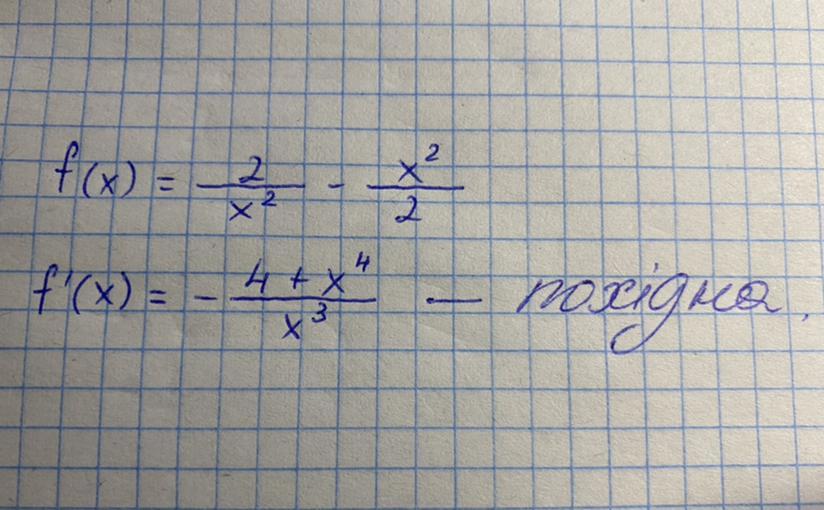 f(x) = 2/x² - x²/2
f'(x) = - (4 + x⁴)/x³ — похідна.